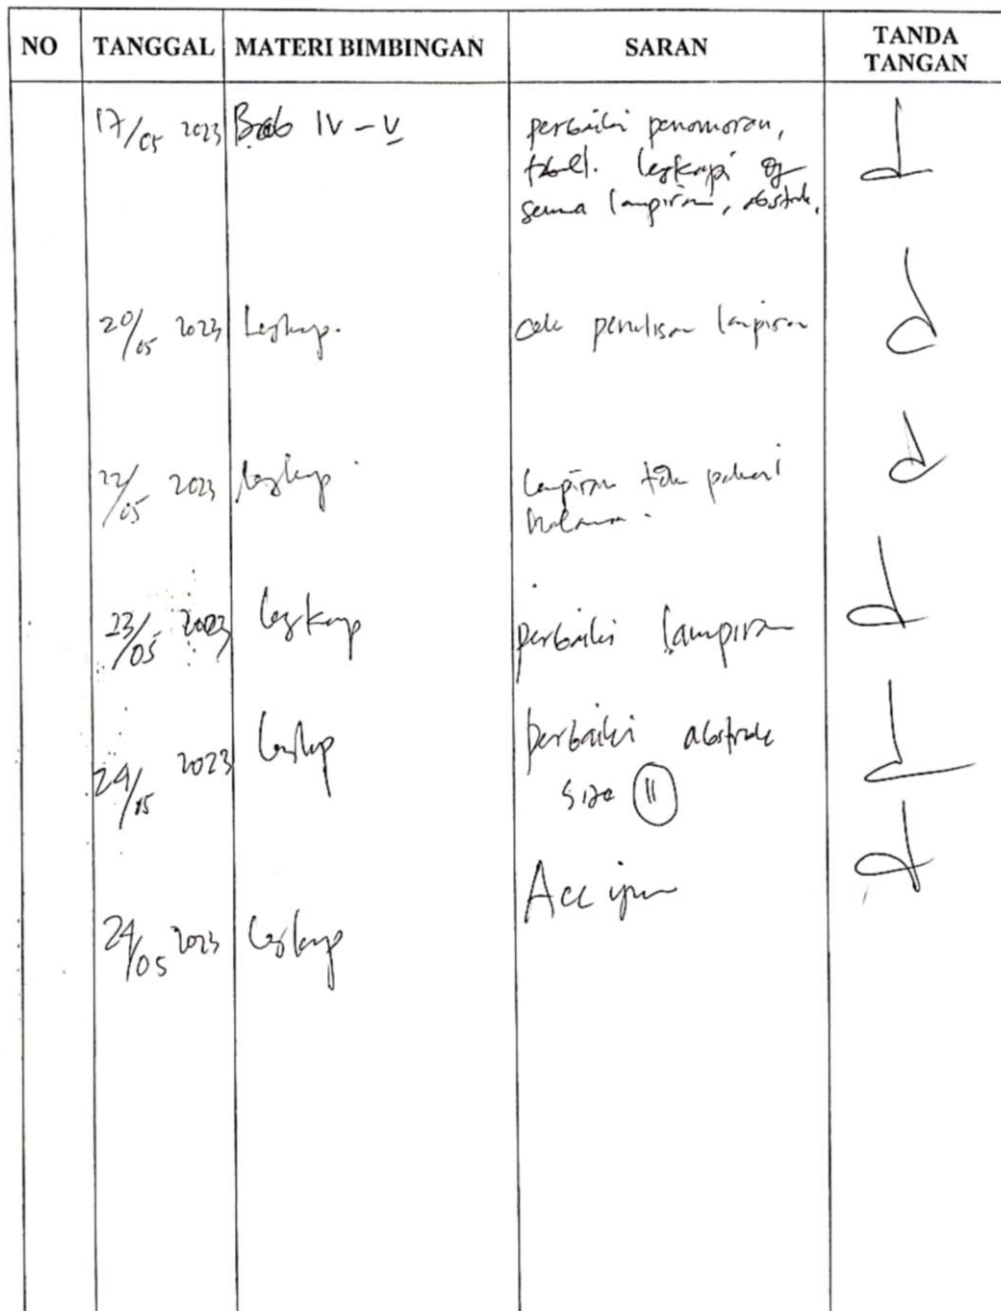 NO TANGGAL MATERI BIMBINGAN SARAN TANDA TANGAN
17/05 2023 Bab IV - V perbaiki penomoran,
tabel. lengkapi dg
semua lampiran, abstrak.
20/05 2023 Lengkap. cek penulisan lampiran
22/05 2023 lengkap. lampiran tdk pakai
halaman.
23/05 2023 lengkap perbaiki lampiran
24/05 2023 lengkap perbaiki abstrak
size 11
24/05 2023 lengkap Acc